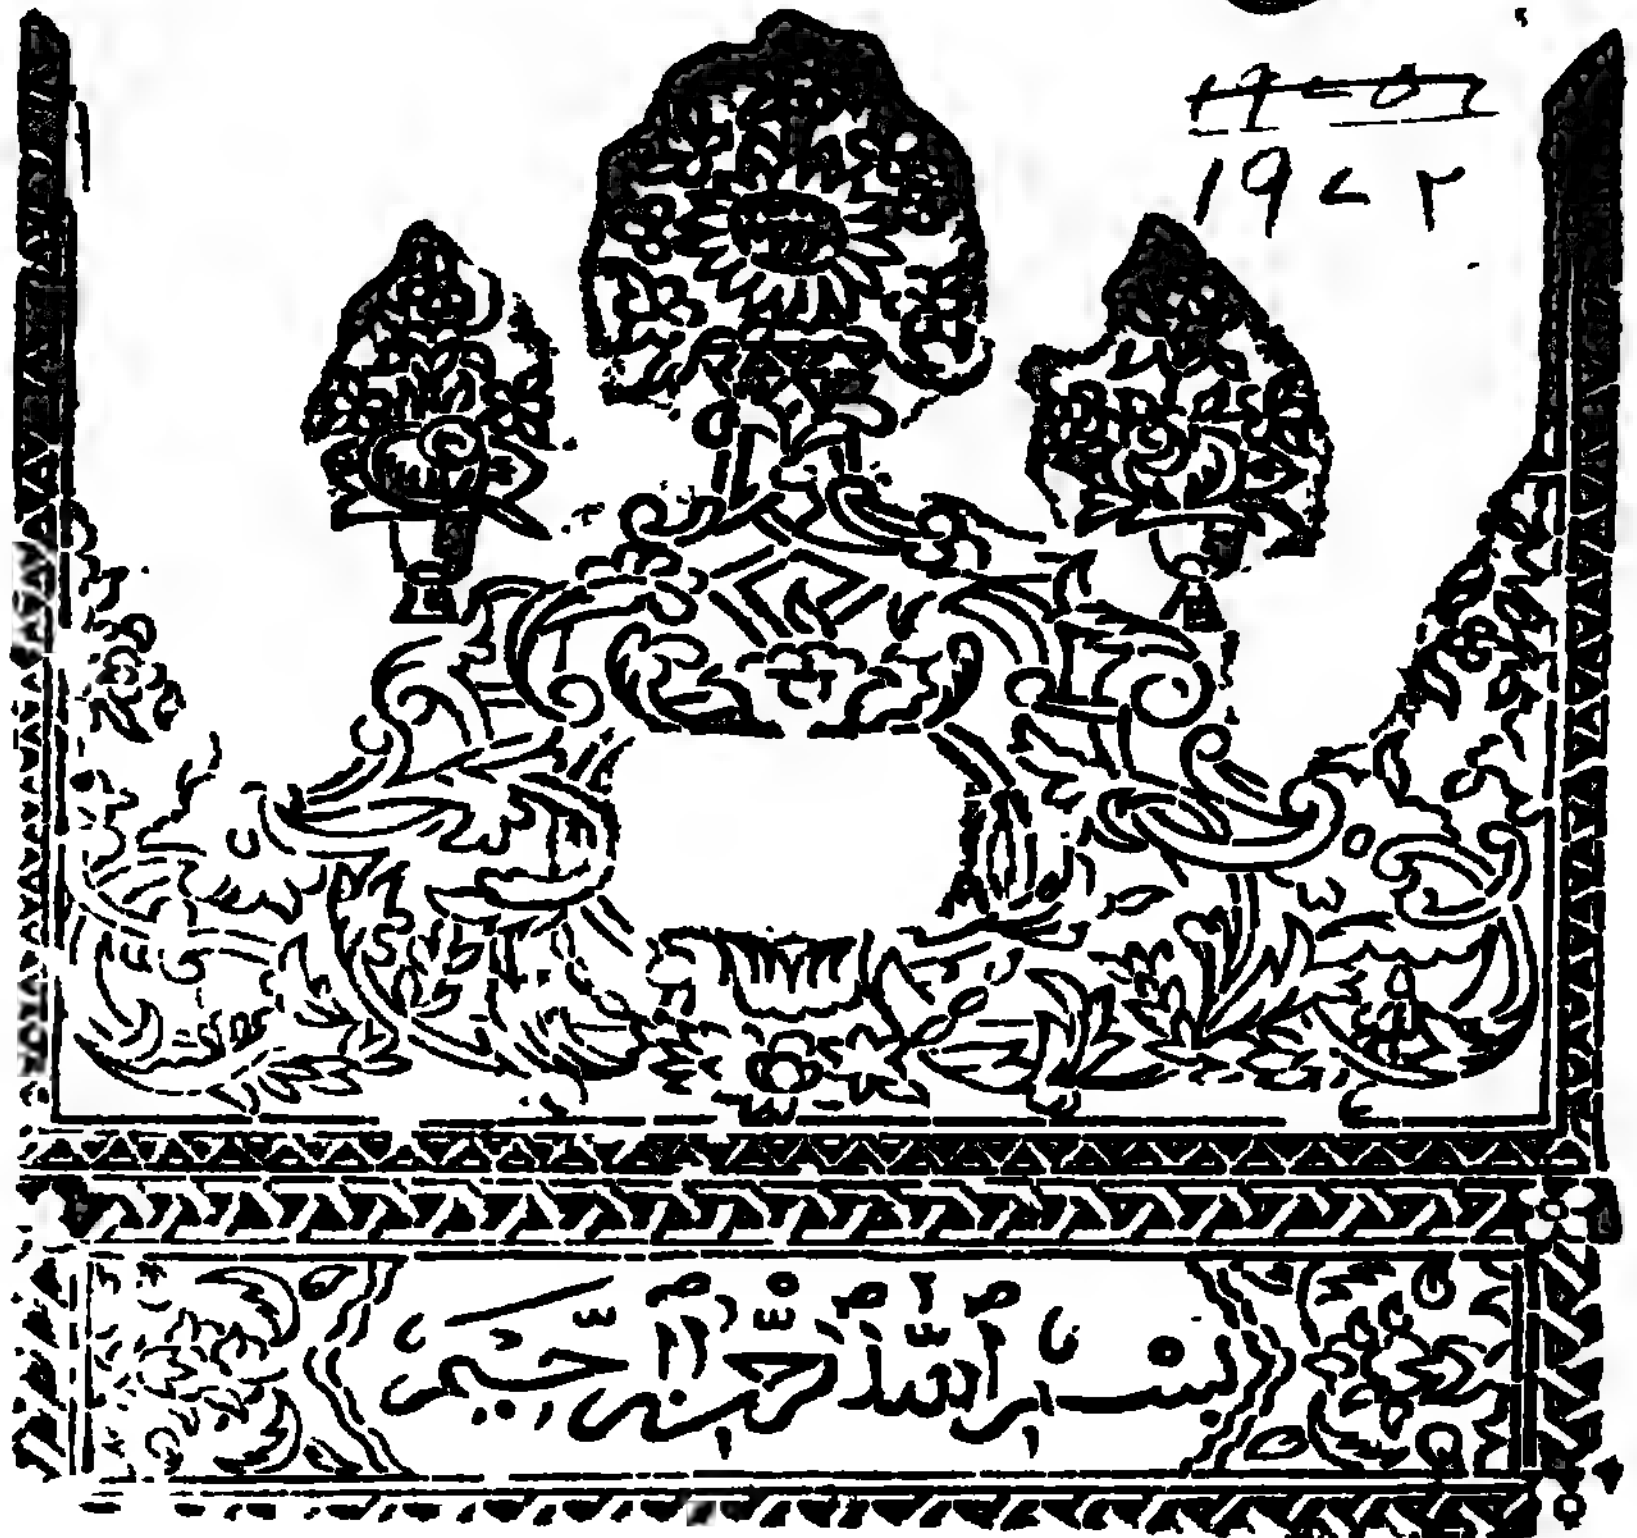 ١٩٧٢
بسم الله الرحمن الرحيم